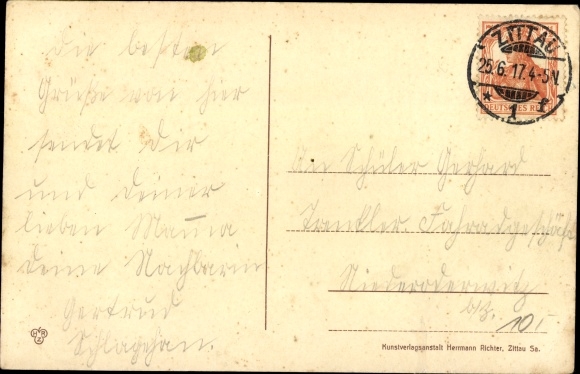 Die besten
Grüße von hier
sendet Dir
und deiner
lieben Mama
deine Nachbarin
Gertrud
ZITTAU
25.6.17.4-5N.
* 1 f
DEUTSCHES REICH
An Schüler Gerhard
Fahradgeschäft
Niederoderwitz
10,-
HRZ
Kunstverlagsanstalt Herrmann Richter, Zittau Sa.